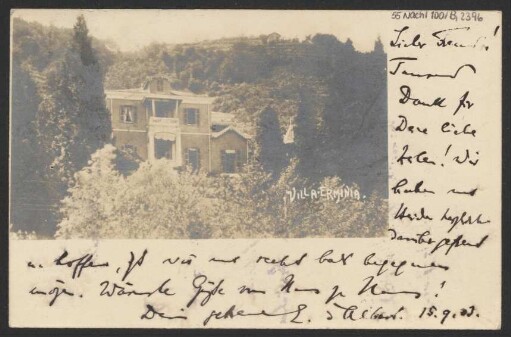 55 Nachl 100/B, 2396
Lieber Freund!
Tausend
Dank für
Deine liebe
Zeilen! Wir
haben uns
beide
u. hoffen, daß wir uns recht bald begegnen
mögen. Wärmste Grüße von Haus zu Haus!
Dein E. d'Albert. 15.9.03.
VILLA ERMINIA.